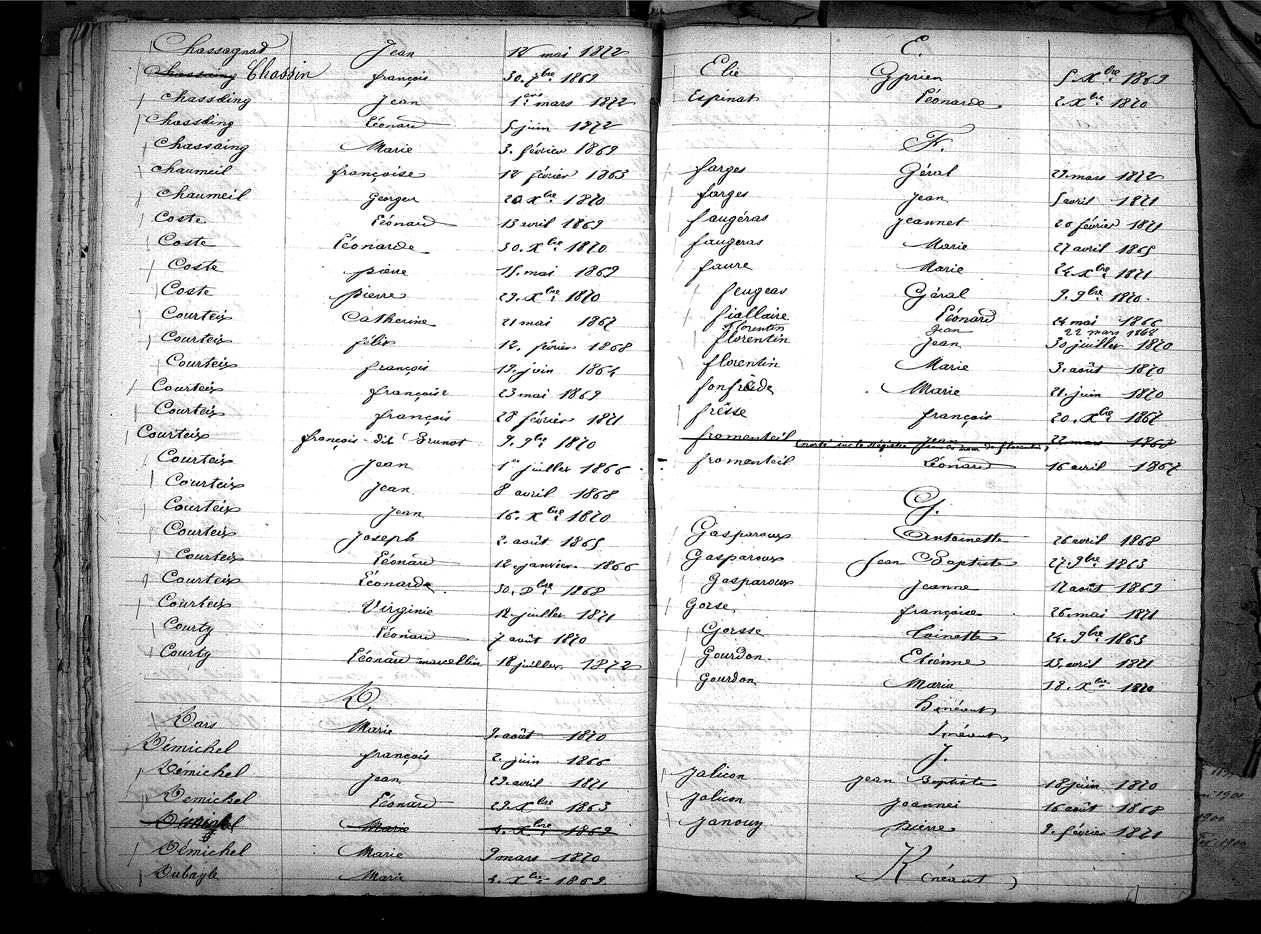 Chassagnad Jean 12 mai 1872
Chassaing Chassin françois 30. 7bre 1869
Chassaing Jean 1er mars 1872
Chassaing Léonard 5 juin 1872
Chassaing Marie 3. février 1869
Chaumeil françoise 12 février 1863
Chaumeil Georges 20 Xbre 1870
Coste Léonard 13 avril 1869
Coste Léonarde 30. Xbre 1870
Coste pierre 15. mai 1869
Coste pierre 29. Xbre 1870
Courteix Catherine 21 mai 1867
Courteix félix 12. février 1868
Courteix françois 19. juin 1864
Courteix françoise 23 mai 1869
Courteix françois 28 février 1871
Courteix françois-dit Brunot 9. 9bre 1870
Courteix Jean 1er juillet 1866
Courteix Jean 8 avril 1868
Courteix Jean 16. Xbre 1870
Courteix Joseph 2. août 1865
Courteix Léonard 12. janvier. 1866
Courteix Léonarde 30. Xbre 1868
Courteix Virginie 12. juillet 1871
Courty Léonard 7 août 1870
Courty Léonard marcellin 18 juillet. 1872
D.
Dars Marie 9. août 1870
Démichel françois 2. juin 1866
Démichel Jean 29. avril 1871
Démichel Léonard 29. Xbre 1863
Marie 4. Xbre 1869
Démichel Marie 9 mars 1870
Dubayle Marie 4. Xbre 1869.
E.
Elie Cyprien 5. Xbre 1869
Espinat Léonarde 2 Xbre 1870
F.
farges Géral 27. mars 1872
farges Jean 5 avril 1871
faugéras Jeannet 20 février 1871
faugeras Marie 27 avril 1865
faure Marie 24. Xbre 1871
feugeas Géral 9. 9bre 1870.
fiallaire Léonard 24 mai 1866
florentin Jean 22 mars 1868
florentin Jean 30 juillet 1870
florentin Marie 3. août 1870
fonfrède Marie 21. juin 1870
frêsse françois 20. Xbre 1867
fromenteil Jean 22 mars 1868
porté sur le registre sous le nom de florentin
fromenteil Léonard 16 avril 1867
G.
Gasparoux Antoinette 26 avril 1868
Gasparoux Jean Baptiste 27. 9bre 1863
Gasparoux Jeanne 12 août 1869
Gorse françoise 26. mai 1871
Gorsse Toinette 24. 9bre 1863
Gourdon. Etiénne 13 avril 1871
Gourdon Maria 18. Xbre 1870
H néant
I néant
J.
Jalicon Jean Baptiste 18 juin 1870
Jalicon Joannei 16 août 1868
Janoux pierre 9. février 1871
K (néant)